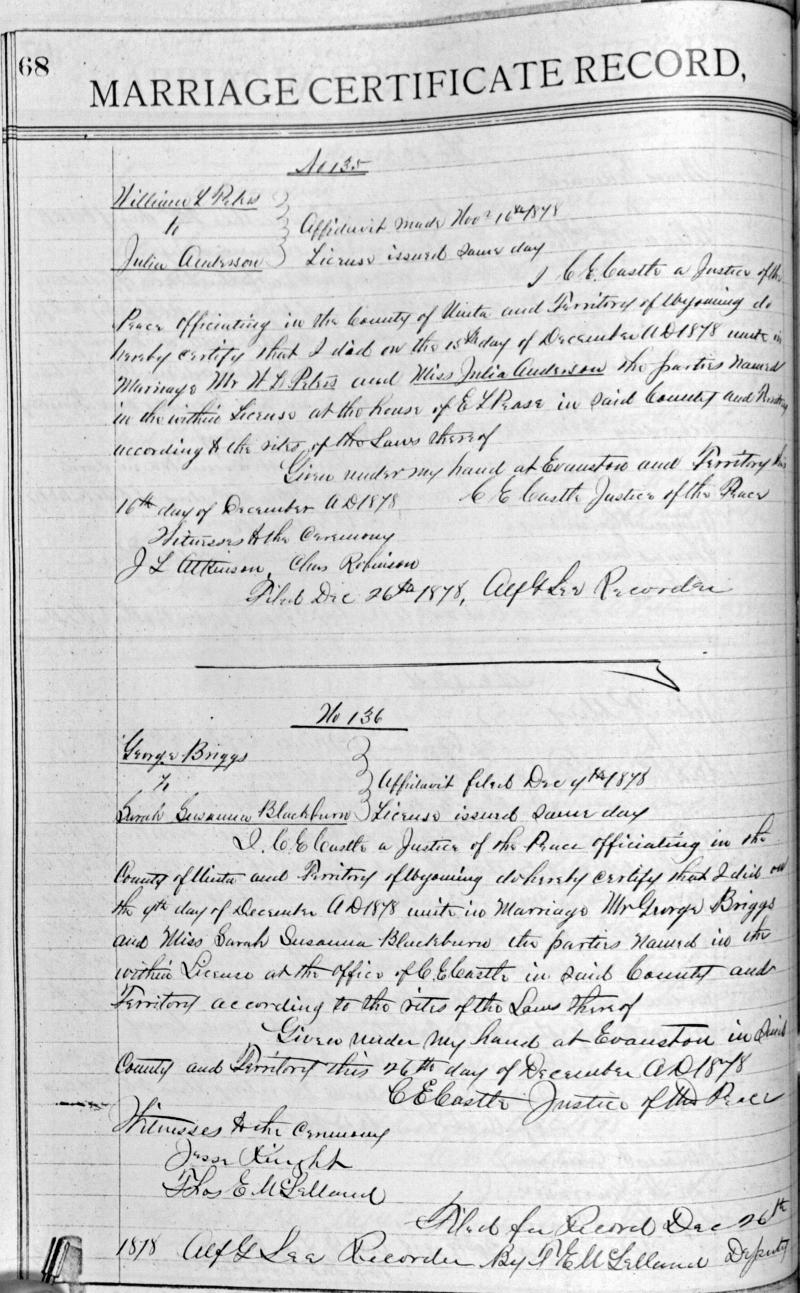 68
MARRIAGE CERTIFICATE RECORD,
No 135
William L Peters
to
Affidavit made Nov 16th 1878
Julia Anderson
License issued same day
I C. E. Castle a Justice of the
Peace officiating in the County of Uinta and Territory of Wyoming do
hereby certify that I did on the day of December A D 1878 unite in
Marriage Mr W L Peters and Miss Julia Anderson the parties named
in the within License at the house of E L Pease in said County and Territory
according to the rites of the Laws thereof
Given under my hand at Evanston and Territory this
16th day of December A D 1878 C E Castle Justice of the Peace
Witnesses to the Ceremony
J L Atkinson, Chas Robinson
Filed Dec 26th 1878, Alf G Lee Recorder
No 136
George Briggs
to
Affidavit filed Dec 9th 1878
Sarah Susanna Blackburn
License issued same day
I. C. E Castle a Justice of the Peace officiating in the
County of Uinta and Territory of Wyoming do hereby certify that I did on
the 9th day of December A D 1878 unite in Marriage Mr George Briggs
and Miss Sarah Susanna Blackburn the parties named in the
within License at the office of C. E Castle in said County and
Territory according to the rites of the Laws thereof
Given under my hand at Evanston in Said
County and Territory this 26th day of December A D 1878
C E Castle Justice of the Peace
Witnesses to the Ceremony
Jesse Knight
Thos E McLelland
Filed for Record Dec 26th
1878 Alf G Lee Recorder By T E McLelland Deputy